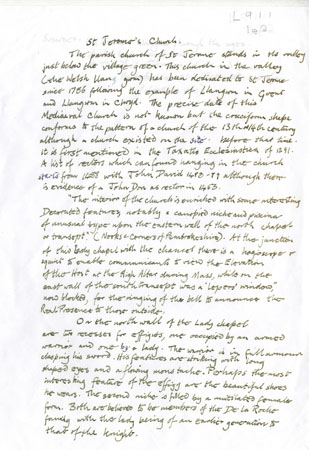 L911
1 of 2
St Jerome's Church.
The parish church of St Jerome stands in the valley
just below the village green. This church in the valley
(the Welsh Llang gwm) has been dedicated to St Jerome
since 1786 following the example of Llangwm in Gwent
and Llangwm in Clwyd. The precise date of this
Mediaeval Church is not known but the cruciform shape
conforms to the pattern of a church of the 13th/14th century
although a church existed on the site before that time.
It is first mentioned in the Taxatio Ecclesiastica of 1291.
A list of rectors which can found hanging in the church
starts from 1488 with John David 1488-89 although there
is evidence of a John as rector in 1453.
"The interior of the church is enriched with some interesting
Decorated features, notably a canopied niche and piscina
of unusual type upon the eastern wall of the north chapel
or transept." (Nooks + Corners of Pembrokeshire). At the junction
of this Lady chapel with the chancel there is a hagioscope or
squint to enable communicants to view the Elevation
of the Host at the High Altar during Mass, while on the
east wall of the south transept was a 'lepers window',
now blocked, for the ringing of the bell to announce the
Real Presence to those outside.
On the north wall of the Lady chapel
are two recesses for effigies, one occupied by an armed
warrior and one by a lady. The warrior is in full armour
clasping his sword. His features are striking with long
shaped eyes and a flowing moustache. Perhaps the most
interesting feature of the effigy are the beautiful shoes
he wears. The second niche is filled by a mutilated female
form. Both are believed to be members of the De La Roche
family with the lady being of an earlier generation to
that of the Knight.